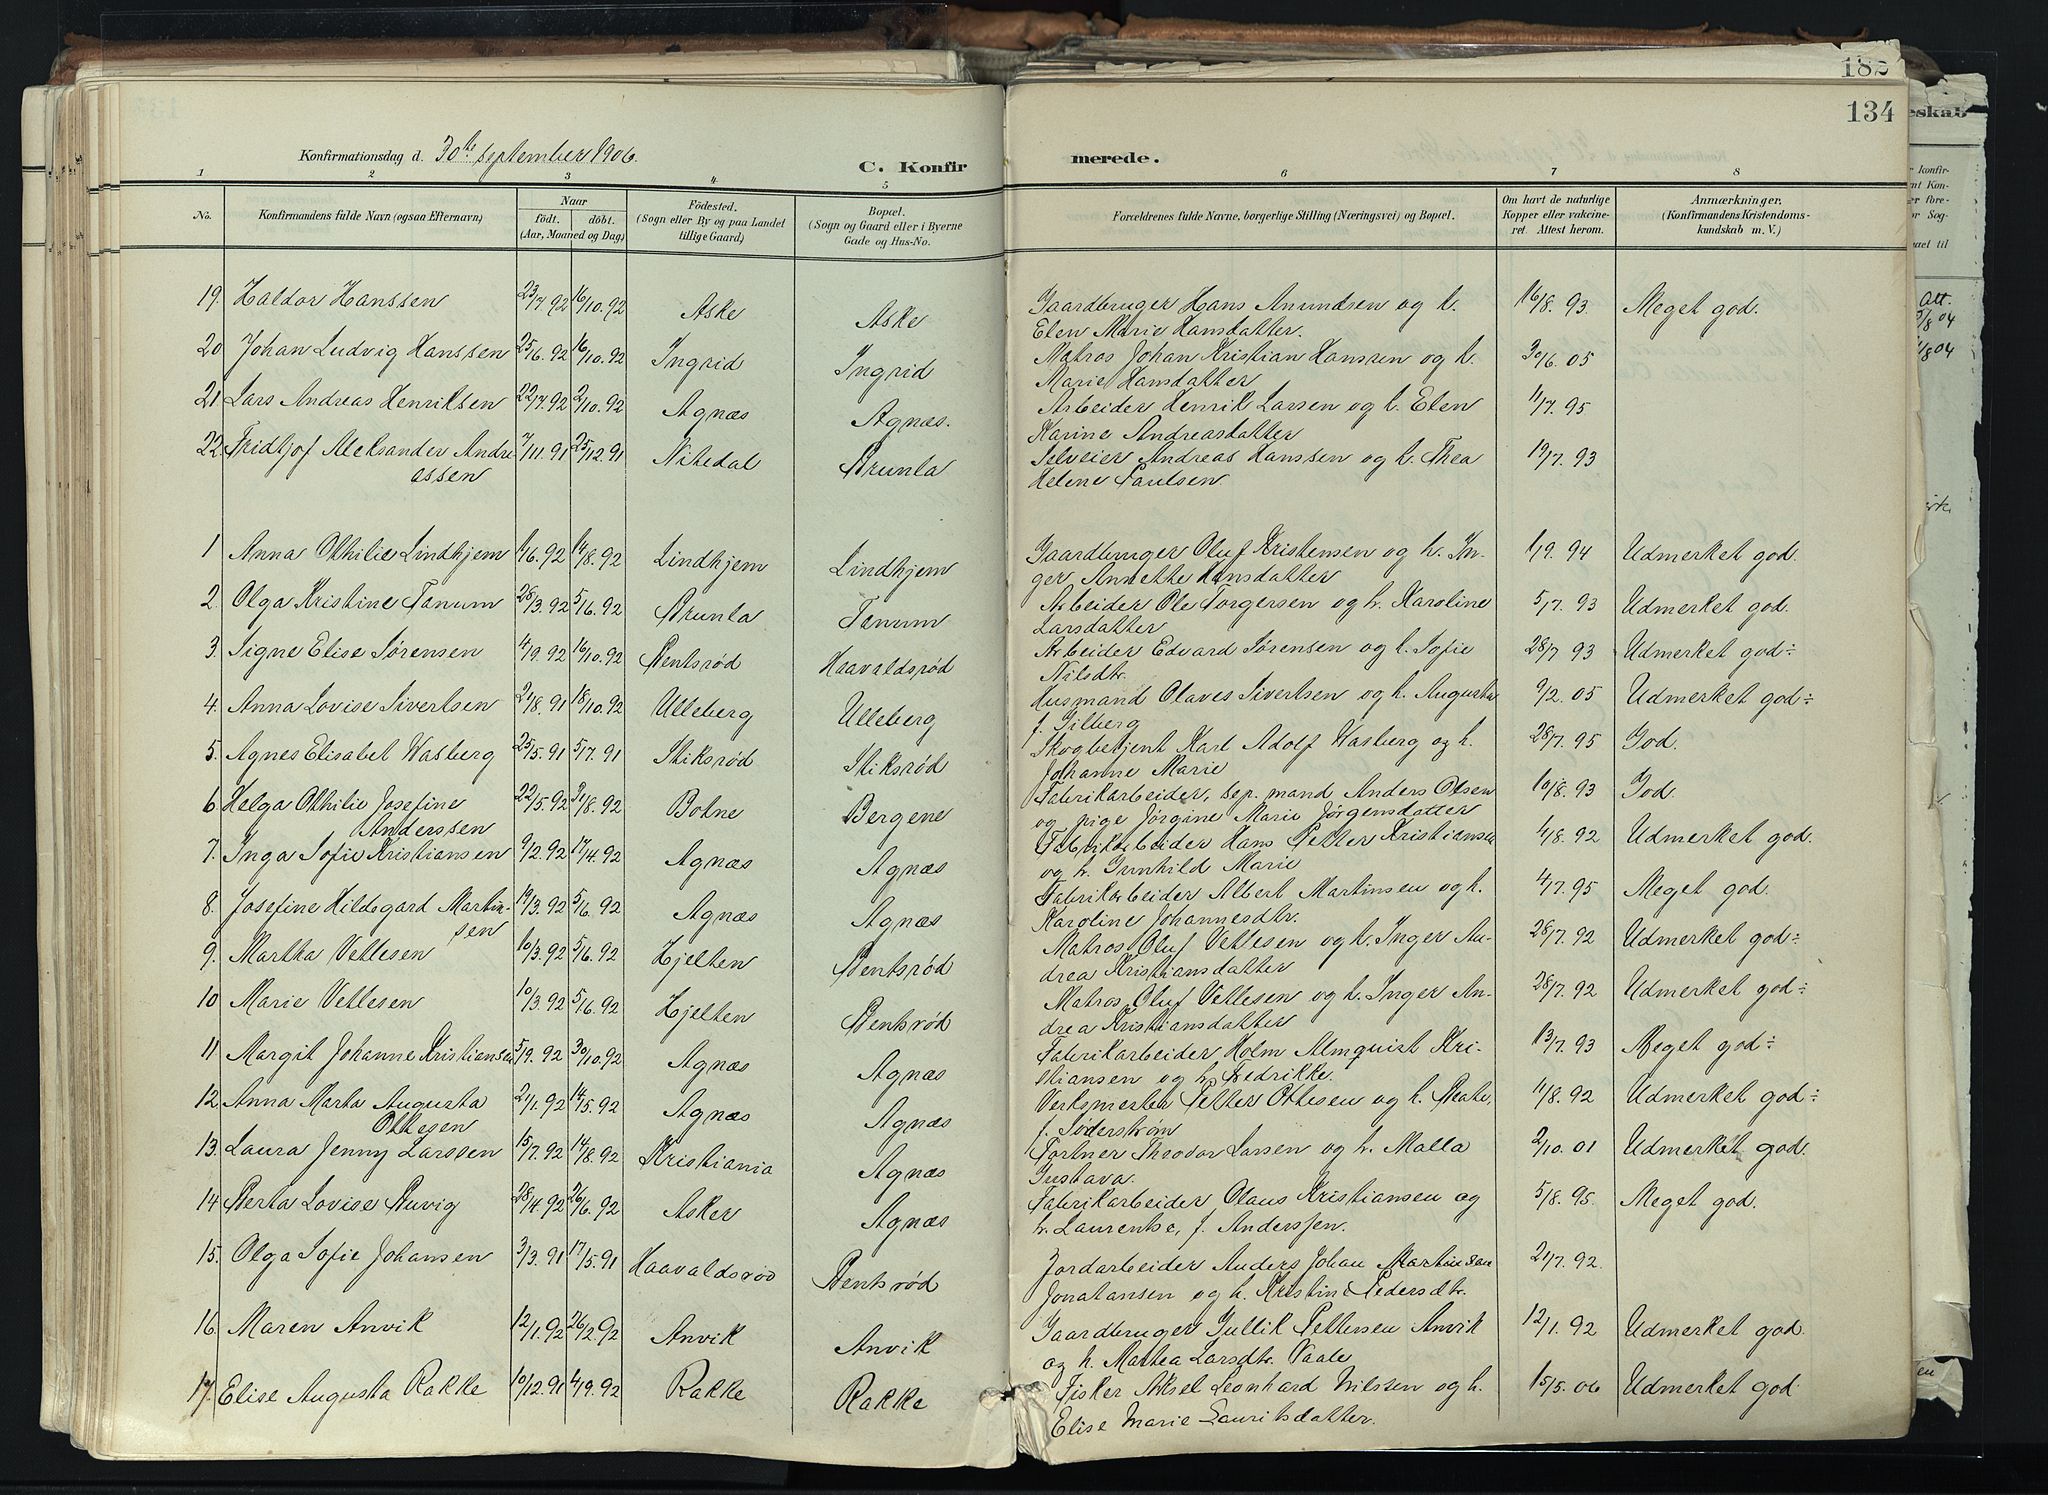 182
134
eskab
Konfirmationsdag d. 30te september 1906.
C. Konfirmerede.
1 2 3 4 5 6 7 8
No.
Konfirmandens fulde Navn (ogsaa Efternavn)
Naar
født. døbt.
(Aar, Maaned og Dag)
Fødested.
(Sogn eller By og paa Landet
tillige Gaard)
Bopæl.
(Sogn og Gaard eller i Byerne
Gade og Hus-No.
Forældrenes fulde Navne, borgerlige Stilling (Næringsvei) og Bopæl.
Om havt de naturlige
Kopper eller vakcine-
ret. Attest herom.
Anmærkninger.
(Konfirmandens Kristendoms-
kundskab m. V.)
19. Haldor Hanssen 23/7 92 16/10. 92 Aske Aske Gaardbruger Hans Amundsen og h. 16/8. 93. Meget god.
Elen Marie Hansdatter.
20. Johan Ludvig Hanssen 25/6. 92 16/10. 92 Ingrid Ingrid Matros Johan Kristian Hanssen og h. 30/6. 05
Marie Hansdatter
21. Lars Andreas Henriksen 22/7. 92 2/10. 92 Agnæs Agnæs. Arbeider Henrik Larsen og h. Elen 11/7. 95
Karine Andreasdatter
22. Fridtjof Aleksander Andre- 7/11. 91 25/12. 91 Nitedal Brunla Selveier Andreas Hanssen og h. Thea 19/7. 93
assen Helene Paulsen.
1 Anna Othilie Lindhjem 1/6. 92 14/8. 92 Lindhjem Lindhjem Gaardbruger Oluf Kristensen og h. In- 1/9. 94 Udmerket god.
ger Annette Hansdatter
2. Olga Kristine Tanum 28/3. 92 5/6. 92 Brunla Tanum Arbeider Ole Torgersen og h. Karoline 5/7. 93 Udmerket god.
Larsdatter
3. Signe Elise Sørensen 4/9. 92 16/10. 92 Bentsrød Haavaldsrød Arbeider Edvard Sørensen og h. Sofie 28/7 93 Udmerket god÷
Nilsdtr.
4. Anna Lovise Sivertsen 21/8. 91 18/10. 92 Ulleberg Ulleberg Husmand Olaves Sivertsen og h. Augusta 9/2. 05 Udmerket god÷
f. Gilberg
5. Agnes Elisabet Wasberg 25/5. 91 5/7. 91 Stiksrød Stiksrød Skogbetjent Karl Adolf Wasberg og h. 28/7. 95 God.
Johanne Marie
6. Helga Othilie Josefine 22/5. 92 21/8. 92 Botne Bergene Fabrikarbeider, sep. mand Anders Olsen 10/8. 93 God.
Anderssen og pige Jørgine Marie Jørgensdatter
7. Inga Sofie Kristiansen 9/2. 92 17/4. 92 Agnæs Agnæs Fabrikarbeider Hans Petter Kristiansen 4/8. 92 Udmerket god.
og h. Gunhild Marie
8. Josefine Hildegard Martin- 19/3. 92 5/6. 92 Agnæs Agnæs Fabrikarbeider Albert Martinsen og h. 4/7. 95 Meget god.
sen Karoline Johannesdtr.
9. Martha Vetlesen 10/3. 92 5/6. 92 Hjelten Bentsrød Matros Oluf Vetlesen og h. Inger An- 28/7. 92 Udmerket god÷
drea Kristiansdatter
10 Marie Vetlesen 10/3. 92 5/6. 92 Hjelten Bentsrød Matros Oluf Vetlesen og h. Inger An- 28/7. 92 Udmerket god÷
drea Kristiansdatter
11 Margit Johanne Kristiansen 5/9. 92 30/10. 92 Agnæs Agnæs Fabrikarbeider Holm Almquist Kri- 13/7. 93 Meget god÷
stiansen og h. Fredrikke.
12 Anna Marta Augusta 21/1. 92 14/5. 92 Agnæs Agnæs Verksmester Petter Ottesen og h. Beate, 11/8. 92 Udmerket god÷
Ottesen f. Söderstrøm
13. Laura Jenny Larssen 15/7. 92 14/8. 92 Kristiania Agnæs Fortner Theodor Larsen og h. Malla 2/10. 01 Udmerket god.
Gustava.
14 Berta Lovise Buvig 28/4. 92 26/6. 92 Asker Agnæs Fabrikarbeider Olaus Kristiansen og 5/8. 95. Meget god.
h. Laurentse, f. Anderssen.
15. Olga Sofie Johansen 3/3. 91 17/5. 91 Haavaldsrød Bentsrød Jordarbeider Anders Johan Martinsen 21/7. 92.
Jonatansen og h. Kristine Pedersdtr.
16. Maren Anvik 12/1. 92 26/2. 92 Anvik Anvik Gaardbruger Gullik Pettersen Anvik 12/1. 92 Udmerket god.
og h. Mathea Larsdtr. Vaale
17. Elise Augusta Rakke 10/12. 91 4/9. 92 Rakke Rakke Fisker Aksel Leonhard Nilssen og h. 15/5. 06 Udmerket god.
Elise Marie Lauritsdatter.